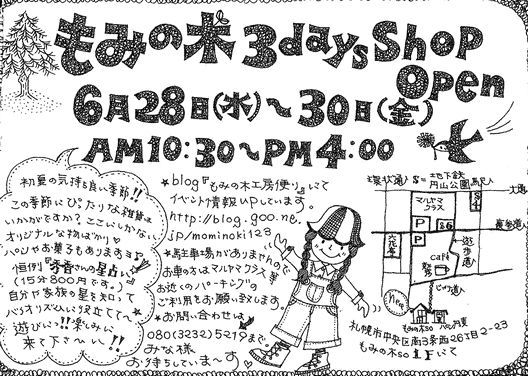 もみの木 3days Shop
Open
6月28日(水)～30日(金)
AM10:30～PM4:00
初夏の気持ち良い季節!!
この季節にぴったりな雑貨は
いかがですか？ここにしかない
オリジナルな物ばかり♡
パンやお菓子もありますョ♪
恒例
さんの星占い
(15分800円です。)
自分や家族の星を知って
遊びに!!楽しみに
来て下さーい!!
★blog『もみの木工房便り』にて
イベント情報UPしています。
http://blog.goo.ne.
jp/mominoki123
★駐車場がありませんので
お車の方はマルヤマクラス等
お近くのパーキングの
ご利用をお願い致します。
★お問い合わせは
080(3232)5219まで。
みな様
お待ちしていまーす
環状通り
地下鉄
円山公園駅
マルヤマ
クラス
P
P
六花亭
café
遊歩道
Here
もみの木so
札幌市中央区南3条西26丁目2-23
もみの木so 1Fにて